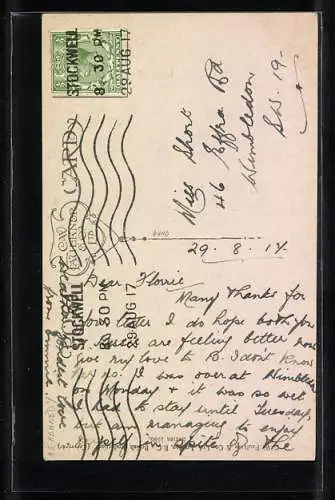 STOCKWELL
8. 30 PM
29 AUG 17
STOCKWELL
8. 30 PM
29 AUG 17
CARD
Miss Short
46 Effra Rd
Wimbledon
S.W. 19-
29. 8. 17.
Dear Florrie
Many thanks for
your letter I do hope both you
are feeling better now
give my love to B. I don't know
no. I was over at Wimbledon
on Monday & it was so wet
I had to stay until Tuesday,
but am managing to enjoy
in spite of the
love
from